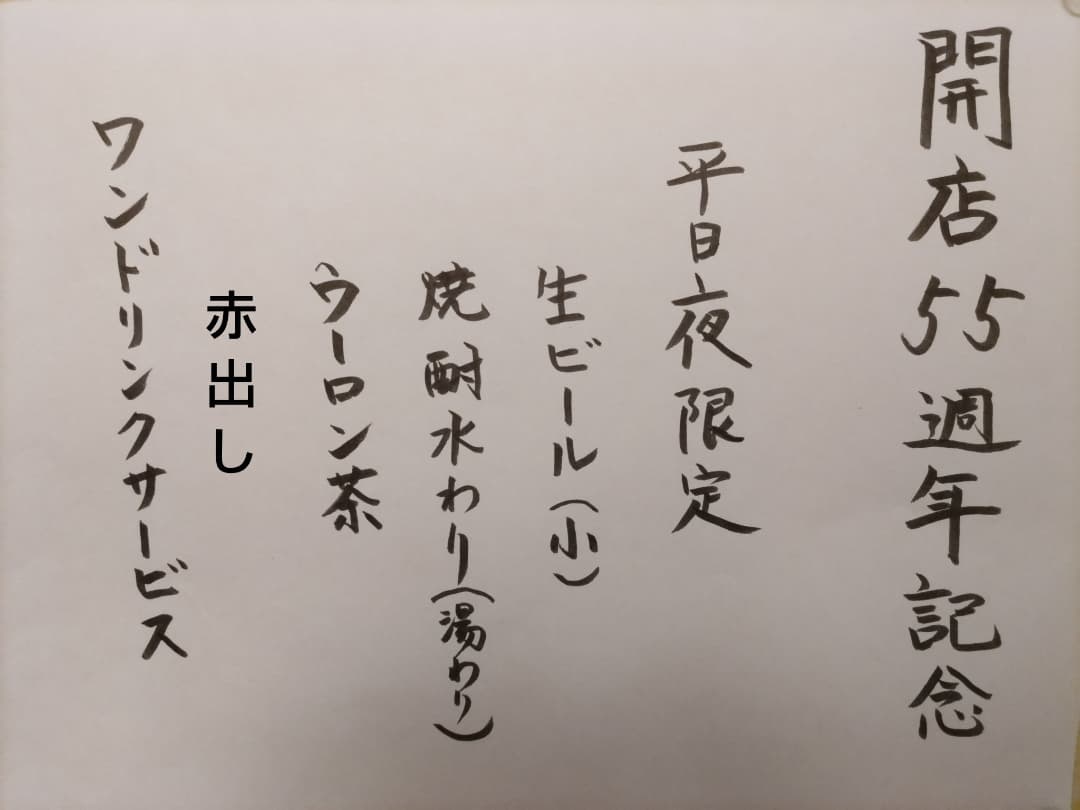 開店55週年記念
平日夜限定
生ビール(小)
焼酎水わり(湯わり)
ウーロン茶
赤出し
ワンドリンクサービス